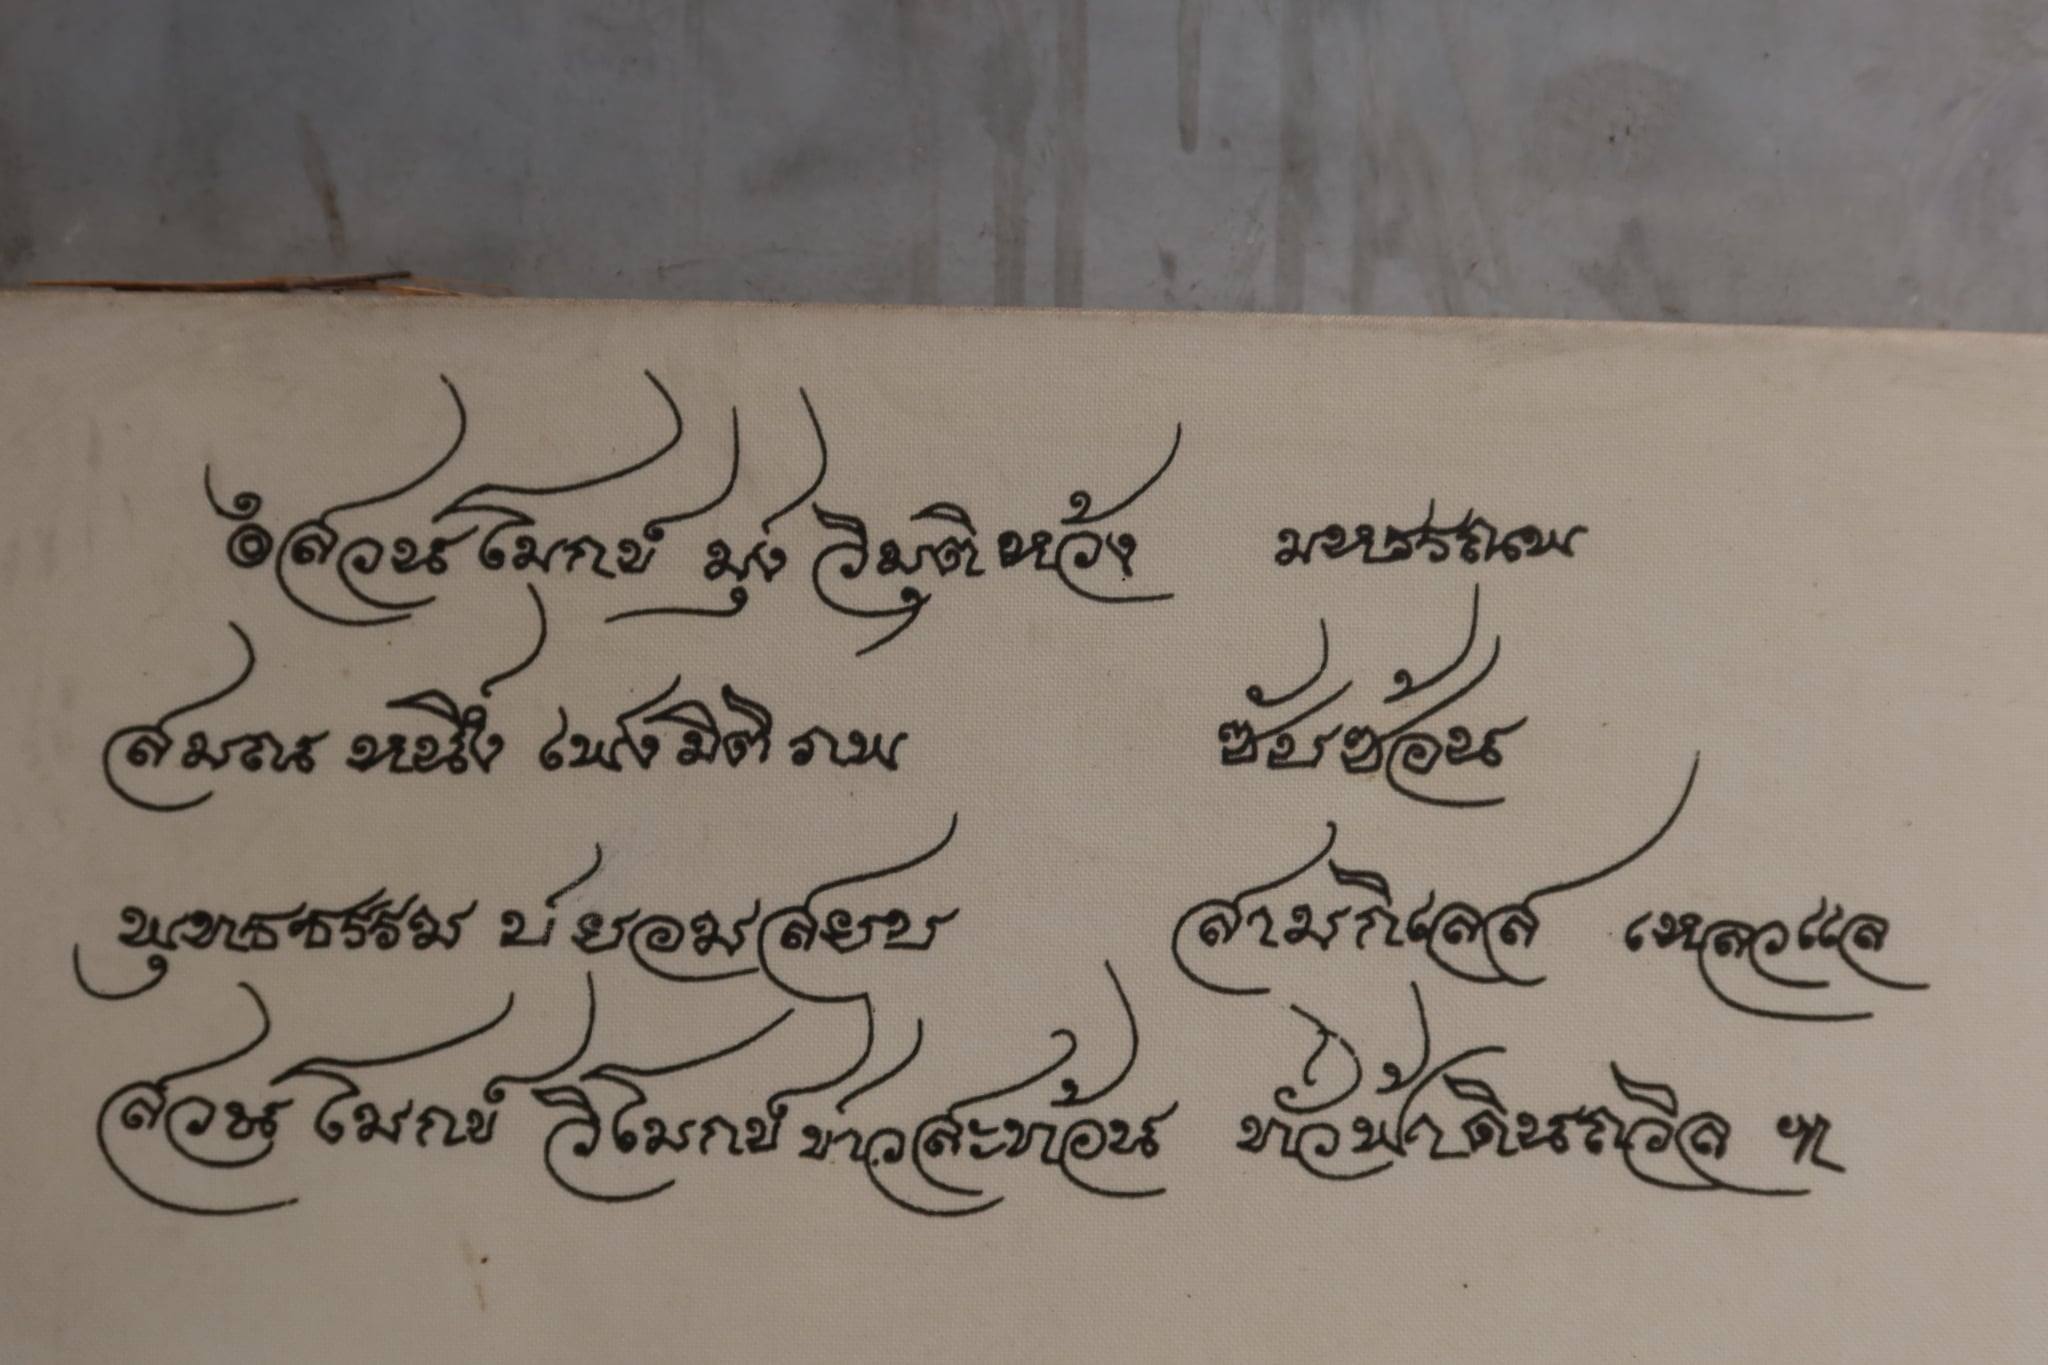 ๏ สวนโมกข์ มุ่งวิมุติห้วง มหรรณพ
สมณหนึ่งเพ่งมิติภพ ซับซ้อน
พุทธธรรม บ่ยอมสยบ สามกิเลส เหลวแล
สวนโมกข์ วิโมกข์ข่าวสะท้อน ทั่วฟ้าดินถวิล ฯ